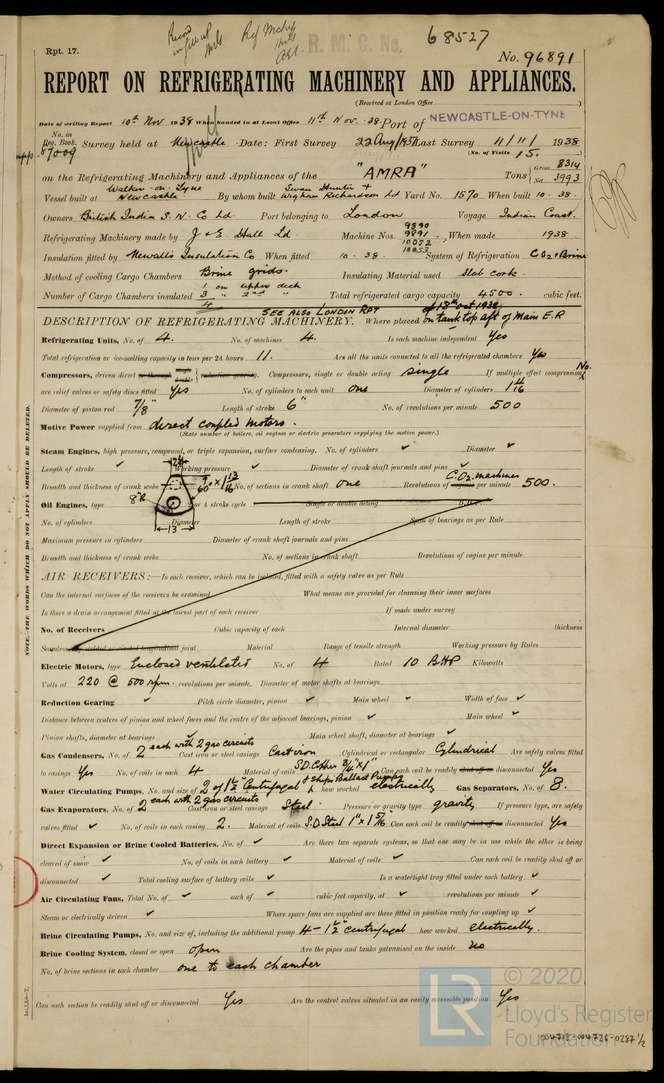 Rpt. 17.
R. M. C. No.
68527
No. 96891
REPORT ON REFRIGERATING MACHINERY AND APPLIANCES.
(Received at London Office )
Date of writing Report 10th Nov 1938 When handed in at Local Office 11th Nov. 38 Port of NEWCASTLE-ON-TYNE
No. in Reg. Book. 87009 Survey held at Newcastle Date: First Survey 22 Aug 1938 Last Survey 11/11/ 1938
(No. of Visits 15.
on the Refrigerating Machinery and Appliances of the "AMRA" Tons Gross 8314 Net 3993
Vessel built at Walker-on-Tyne Newcastle By whom built Swan Hunter & Wigham Richardson Ld Yard No. 1570 When built 10-38.
Owners British India S. N. Co Ld. Port belonging to London Voyage Indian Coast.
Refrigerating Machinery made by J & E. Hall Ld Machine Nos. 9890 9891 10052 10053 When made 1938
Insulation fitted by Newalls Insulation Co When fitted 10-38. System of Refrigeration CO2 & Brine
Method of cooling Cargo Chambers Brine grids. Insulating Material used Slab cork.
Number of Cargo Chambers insulated 1 on upper deck 3 " 2nd " 4 Total refrigerated cargo capacity 4500. cubic feet.
SEE ALSO LONDON RPT of 13th Oct 1938
DESCRIPTION OF REFRIGERATING MACHINERY. Where placed on tank top aft of Main E.R
Refrigerating Units, No. of 4. No. of machines 4. Is each machine independent Yes
Total refrigeration or ice-melting capacity in tons per 24 hours 11. Are all the units connected to all the refrigerated chambers Yes
Compressors, driven direct or through single double reduction gearing. Compressors, single or double acting single If multiple effect compression No.
are relief valves or safety discs fitted Yes No. of cylinders to each unit one Diameter of cylinders 1 14/16
Diameter of piston rod 7/8" Length of stroke 6" No. of revolutions per minute 500
Motive Power supplied from direct coupled motors.
(State number of boilers, oil engines or electric generators supplying the motive power.)
Steam Engines, high pressure, compound, or triple expansion, surface condensing. No. of cylinders ✓ Diameter ✓
Length of stroke ✓ Working pressure ✓ Diameter of crank shaft journals and pins ✓
Breadth and thickness of crank webs 60° × 1 13/16 No. of sections in crank shaft one Revolutions of engine per minute CO2 machines 500.
8"R
13
Oil Engines, type or 4 stroke cycle Single or double acting B.H.P.
No. of cylinders Diameter Length of stroke Span of bearings as per Rule
Maximum pressure in cylinders Diameter of crank shaft journals and pins
Breadth and thickness of crank webs No. of sections in crank shaft Revolutions of engine per minute
AIR RECEIVERS:—Is each receiver, which can be isolated, fitted with a safety valve as per Rule
Can the internal surfaces of the receivers be examined What means are provided for cleansing their inner surfaces
Is there a drain arrangement fitted at the lowest part of each receiver If made under survey
No. of Receivers Cubic capacity of each Internal diameter thickness
Seamless, lap welded or riveted longitudinal joint Material Range of tensile strength Working pressure by Rules
Electric Motors, type Enclosed ventilated No. of 4 Rated 10 BHP Kilowatts
Volts at 220 @ 500 rpm. revolutions per minute. Diameter of motor shafts at bearings
Reduction Gearing ✓ Pitch circle diameter, pinion ✓ Main wheel ✓ Width of face ✓
Distance between centres of pinion and wheel faces and the centre of the adjacent bearings, pinion ✓ Main wheel ✓
Pinion shafts, diameter at bearings ✓ Main wheel shaft, diameter at bearings ✓
Gas Condensers, No. of 2 each with 2 gas circuits Cast iron or steel casings Cast iron Cylindrical or rectangular Cylindrical Are safety valves fitted
to casings Yes No. of coils in each 4 Material of coils S.D. Copper 3/4" × 1" Can each coil be readily shut off or disconnected Yes
Water Circulating Pumps, No. and size of 2 of 1 1/2" Centrifugal & Ships Ballast Pump how worked electrically Gas Separators, No. of 8.
Gas Evaporators, No. of 2 each with 2 gas circuits Cast iron or steel casings Steel Pressure or gravity type gravity If pressure type, are safety
valves fitted ✓ No. of coils in each casing 2. Material of coils S.D Steel 1" × 1 5/16 Can each coil be readily shut off or disconnected Yes
Direct Expansion or Brine Cooled Batteries, No. of ✓ Are there two separate systems, so that one may be in use while the other is being
cleared of snow ✓ No. of coils in each battery ✓ Material of coils ✓ Can each coil be readily shut off or
disconnected ✓ Total cooling surface of battery coils ✓ Is a watertight tray fitted under each battery ✓
Air Circulating Fans, Total No. of ✓ each of ✓ cubic feet capacity, at ✓ revolutions per minute ✓
Steam or electrically driven ✓ Where spare fans are supplied are these fitted in position ready for coupling up ✓
Brine Circulating Pumps, No. and size of, including the additional pump 4-1 1/2" centrifugal how worked electrically.
Brine Cooling System, closed or open open Are the pipes and tanks galvanised on the inside no
No. of brine sections in each chamber one to each chamber
Can each section be readily shut off or disconnected Yes Are the control valves situated in an easily accessible position Yes
NOTE.—THE WORDS WHICH DO NOT APPLY SHOULD BE DELETED.
© 2020
LR
Lloyd's Register
Foundation
004718-004726-0287 1/2